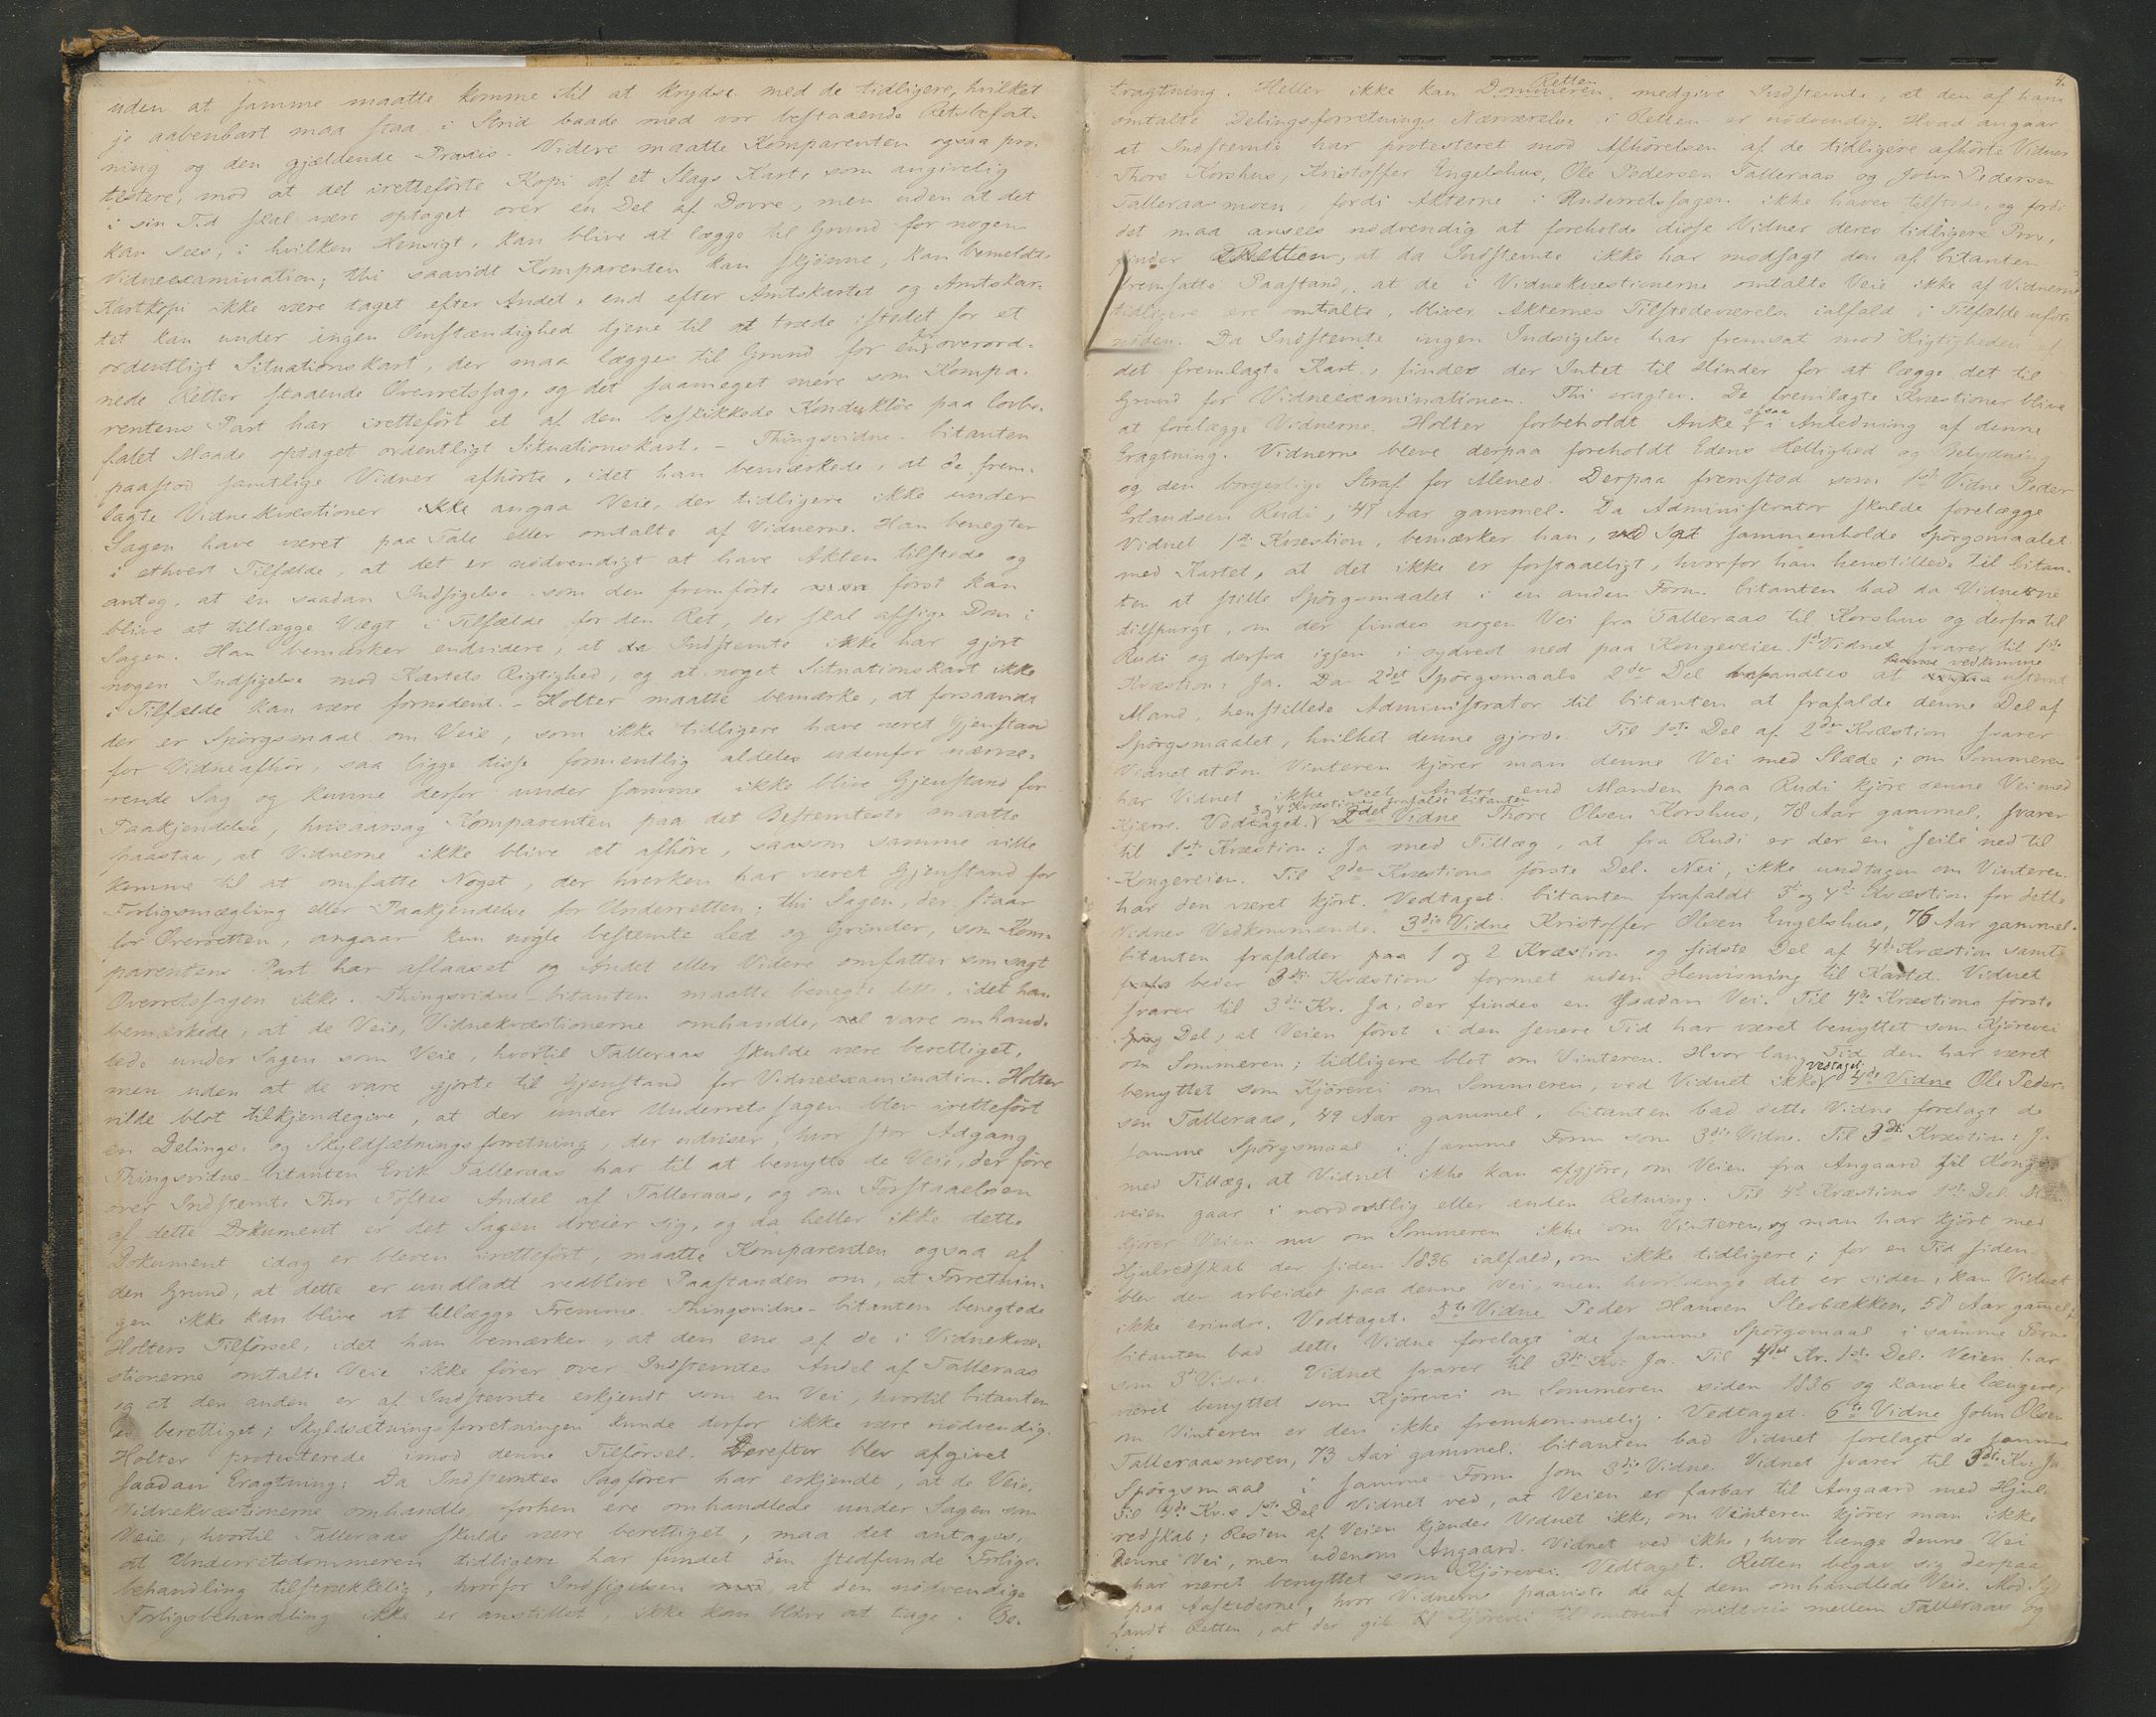 uden at samme maatte komme til at krydse med de tidligere, hvilket
jo aabenbart maa staa i Strid baade med vor bestaaende Retsforfat-
ning og den gjældende Praxis. Videre maatte Komparenten ogsaa pro-
testere, mod at det iretteførte Kopi af et Slags Kart, som angivelig
i sin Tid skal være optaget over en Del af Dovre, men uden at det
kan sees, i hvilken Hensigt, kan blive at lægge til Grund for nogen
Vidneexamination; thi saavidt Komparenten kan skjønne, kan bemeldte
Kartkopi ikke være taget efter Andet, end efter Amtskartet og Amtskar-
tet kan under ingen Omstændighed tjene til at træde istedet for et
ordentligt Situationskart, der maa lægges til Grund for en for overord-
nede Retter staaende Overretssag, og det saameget mere som Kompa-
rentens Part har iretteført et af den beskikkede Konduktör paa lovbe-
falet Maade optaget ordentligt Situationskart. – Thingsvidne-Citanten
paastod samtlige Vidner afhørte, idet han bemærkede, at de frem-
lagte Vidnekvæstioner ikke angaa Veie, der tidligere ikke under
Sagen have været paa Tale eller omtalte af Vidnerne. Han benegter
i ethvert Tilfælde, at det er nödvendigt at have Akten tilstede og
antog, at en saadan Indsigelse som den fremførte först kan
blive at tillægge Vægt i Tilfælde for den Ret, der skal afsige Dom i
Sagen. Han bemærker endvidere, at da Indstevnte ikke har gjort
nogen Indsigelse mod Kartets Rigtighed, og at noget Situationskart ikke
i Tilfælde kan være fornödent. – Holter maatte bemærke, at forsaavidt
der er Spörgsmaal om Veie, som ikke tidligere have været Gjenstand
for Vidneafhør, saa ligge disse formentlig aldeles udenfor nærvæ-
rende Sag og kunne derfor under samme ikke blive Gjenstand for
Paakjendelse, hvisaarsag Komparenten paa det Bestemteste maatte
paastaa, at Vidnerne ikke blive at afhöre, saasom samme vilde
komme til at omfatte Noget, der hverken har været Gjenstand for
Forligsmægling eller Paakjendelse for Underretten; thi Sagen, der staar
for Overretten, angaar kun nogle bestemte Led og Grinder, som Kom-
parentens Part har aflaaset og Andet eller Videre omfatter som sagt
Overretssagen ikke. Thingsvidne-Citanten maatte benegte dette, idet han
bemærkede, at de Veie, Vidnekvæstionerne omhandle, vel vare omhand-
lede under Sagen som Veie, hvortil Talleraas skulde være berettiget,
men uden at de vare gjorte til Gjenstand for Vidneexamination. Holter
vilde blot tilkjendegive, at der under Underretssagen blev iretteført
en Delings- og Skyldsætningsforretning, der udviser, hvor stor Adgang
Thingsvidne-Citanten Erik Talleraas har til at benytte de Veie, der före
over Indstevnte Thor Toftes Andel af Talleraas, og om Forstaaelsen
af dette Dokument er det Sagen dreier sig, og da heller ikke dette
Dokument idag er bleven iretteført, maatte Komparenten ogsaa af
den Grund, at dette er undladt vedblive Paastanden om, at Forretnin-
gen ikke kan blive at tillægge Fremme. Thingsvidne-Citanten benegtede
Holters Tilførsel, idet han bemærker, at den ene af de i Vidnekvæ-
stionerne omtalte Veie ikke fører over Indstevntes Andel af Talleraas
og at den anden er af Indstevnte erkjendt som en Vei, hvortil Citanten
er berettiget; Skyldsætningsforretningen kunde derfor ikke være nödvendig.
Holter protesterede imod denne Tilførsel. Derefter blev afgivet
saadan Eragtning: Da Indstevntes Sagfører har erkjendt, at de Veie,
Vidnekvæstionerne omhandle, forhen ere omhandlede under Sagen som
Veie, hvortil Talleraas skulde være berettiget, maa det antages,
at Underretsdommeren tidligere har fundet den stedfundne Forligs-
behandling tilstrækkelig, hvorfor Indsigelsen, at den nödvendige
Forligsbehandling ikke er anstillet ikke kan blive at tage i Be-
4.
tragtning. Heller ikke kan Dommeren Retten medgive Indstevnte, at den af ham
omtalte Delingsforretnings Nærværelse i Retten er nödvendig. Hvad angaar
at Indstevnte har protesteret mod Afhörelsen af de tidligere afhörte Vidner
Thore Korshus, Kristoffer Engelshus, Ole Pedersen Talleraas og John Pedersen
Talleraasmoen, fordi Akterne i Underretssagen ikke haves tilstede, og fordi
det maa ansees nödvendig at foreholde disse Vidner deres tidligere Prov,
finder Retten, at da Indstevnte ikke har modsagt den af Citanten
fremsatte Paastand, at de i Vidnekvæstionerne omtalte Veie ikke af Vidnerne
tidligere ere omtalte, bliver Akternes Tilstedeværelse ialfald i Tilfælde ufor-
nöden. Da Indstevnte ingen Indsigelse har fremsat mod Rigtigheden af
det fremlagte Kart, findes der Intet til Hinder for at lægge det til
Grund for Vidneexaminationen. Thi eragtes: De fremlagte Kvæstioner blive
at forelægge Vidnerne. Holter forbeholdt Anke ogsaa i Anledning af denne
Eragtning. Vidnerne bleve derpaa foreholdt Edens Hellighed og Betydning
og den borgerlige Straf for Mened. Derpaa fremstod som 1ste Vidne Peder
Erlandsen Rudi, 47 Aar gammel. Da Administrator skulde forelægge
Vidnet 1ste Kvæstion, bemærker han, ved at sammenholde Spörgsmaalet
med Kartet, at det ikke er forstaaeligt, hvorfor han henstillede til Citan-
ten at stille Spörgsmaalet i en anden Form. Citanten bad da Vidnerne
tilspurgt, om der findes nogen Vei fra Talleraas til Korshus og derfra til
Rudi og derfra igjen i sydvest ned paa Kongeveien. 1ste Vidnet svarer til 1ste
Kvæstion: Ja. Da 2det Spörgsmaals 2den Del befandtes at kunne vedkomme ustevnt
Mand, henstillede Administrator til Citanten at frafalde denne Del af
Spörgsmaalet, hvilket denne gjorde. Til 1ste Del af 2den Kvæstion svarer
Vidnet at om Vinteren kjører man denne Vei med Slæde; om Sommeren
har Vidnet ikke seet Andre end Manden paa Rudi kjøre denne Vei med
Kjærre. Vedtaget. 3 og 4 Kvæstion frafaldt Citanten 2det Vidne Thore Olsen Korshus, 78 Aar gammel, svarer
til 1ste Kvæstion: Ja med Tillæg, at fra Rudi er der en "Geile" ned til
Kongeveien. Til 2den Kvæstions første Del: Nei, ikke undtagen om Vinteren
har den været kjört. Vedtaget. Citanten frafaldt 3die og 4de Kvæstion for dette
Vidnes Vedkommende. 3die Vidne Kristoffer Olsen Engelshus, 76 Aar gammel.
Citanten frafalder paa 1 og 2 Kvæstion og sidste Del af 4de Kvæstion samt
beder 3die Kvæstion formet uden Henvisning til Kartet. Vidnet
svarer til 3die Kv. Ja, der findes en saadan Vei. Til 4de Kvæstions første
Del, at Veien først i den senere Tid har været benyttet som Kjörevei
om Sommeren; tidligere blot om Vinteren. Hvor lang Tid den har været
benyttet som Kjörevei om Sommeren ved Vidnet ikke. Vedtaget. 4de Vidne Ole Peder-
sen Talleraas, 49 Aar gammel. Citanten bad dette Vidne forelagt de
samme Spörgsmaal i samme Form som 3die Vidne. Til 3die Kvæstion: Ja
med Tillæg, at Vidnet ikke kan afgjøre, om Veien fra Angaard til Konge-
veien gaar i nordostlig eller anden Retning. Til 4de Kvæstions 1ste Del: Man
kjører Veien nu om Sommeren ikke om Vinteren, og man har kjört med
Hjulredskab der siden 1836 ialfald, om ikke tidligere; for en Tid siden
blev der arbeidet paa denne Vei, men hvorlænge det er siden, kan Vidnet
ikke erindre. Vedtaget. 5te Vidne Peder Hansen Slesbækken, 58 Aar gammel.
Citanten bad dette Vidne forelagt de samme Spörgsmaal i samme Form
som 3die Vidne. Vidnet svarer til 3die Kv. Ja. Til 4de Kv. 1ste Del: Veien har
været benyttet som Kjörevei om Sommeren siden 1836 og kanske længere;
om Vinteren er den ikke fremkommelig. Vedtaget. 6te Vidne John Olsen
Talleraasmoen, 73 Aar gammel. Citanten bad Vidnet forelagt de samme
Spörgsmaal i samme Form som 3die Vidne. Vidnet svarer til 3die Kv: Ja
Til 4de Kv.s 1ste Del Vidnet ved, at Veien er farbar til Angaard med Hjul-
redskab; Resten af Veien kjender Vidnet ikke; om Vinteren kjører man ikke
denne Vei, men udenom Angaard. Vidnet ved ikke, hvor længe denne Vei
har været benyttet som Kjörevei. Vedtaget. Retten begav sig derpaa
paa Aastederne, hvor Vidnerne paaviste de af dem omhandlede Veie. Mod Syd
fandt Retten, at der gik Kjörevei til omtrent midtveis mellem Talleraas og